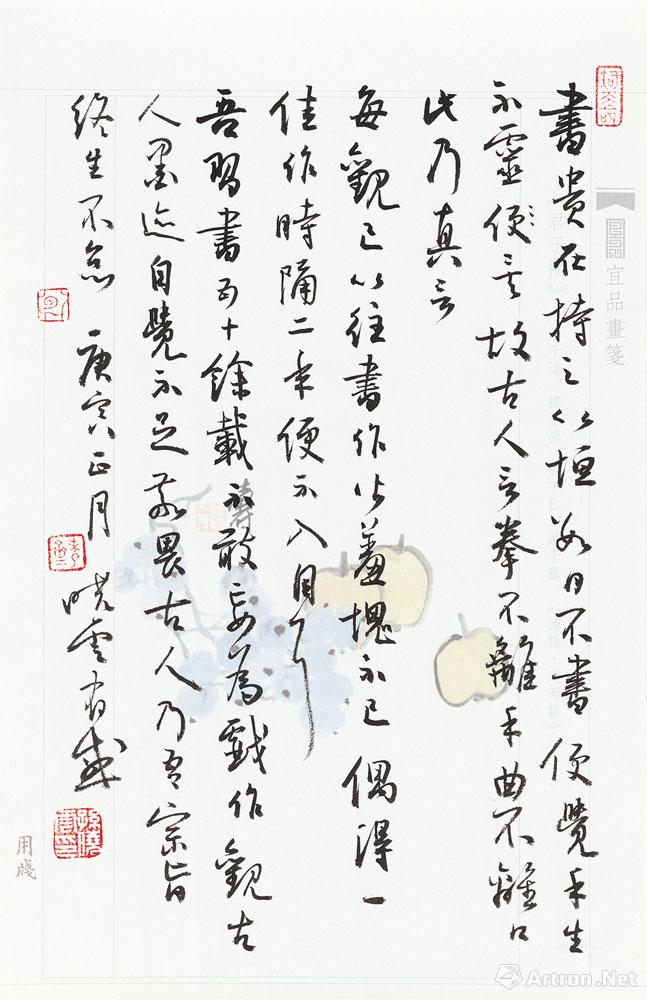 書贵在持之以恒 数日不書 便覺手生
不靈便矣 故古人言拳不離手曲不離口
此乃真言
每觀已以往書作 羞愧不已 偶得一
佳作時隔二年便不入目了
吾習書五十餘載 不敢妄為戲作 觀古
人墨迹自覺不足 敬畏古人乃吾宗旨
终生不怠 庚寅正月 曉雲有感
宜品畫箋
用牋
Artron.Net